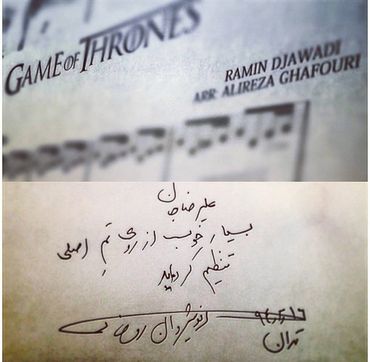 GAME OF THRONES
RAMIN DJAWADI
ARR: ALIREZA GHAFOURI
علیرضا جان
بسیار خوب از روی تم اصلی
تنظیم کرده‌اید
انوشیروان روحانی
تهران